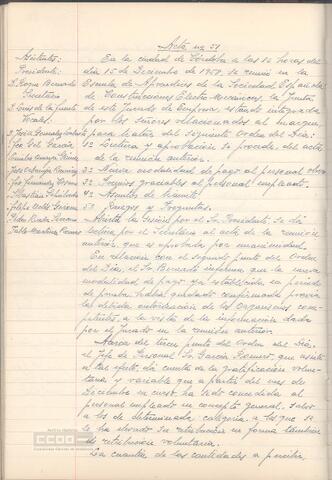 Acta nº 51
Asistentes:
Presidente:
D. Roque Bernardo
Secretario
D. Luis de la Fuente
Vocales:
José Gel García
José Jiménez
Pedro
Pablo Martínez
En la ciudad de Córdoba a las 12 horas del
día 15 de Diciembre de 1958, se reunió en la
Escuela de Aprendices de la Sociedad Española
de Construcciones Electro-Mecánicas, la Junta
de este Jurado de Empresa, estando integrada
por los señores relacionados al margen,
para tratar del siguiente Orden del Día:
1º Lectura y aprobación si procede, del acta
de la reunión anterior.
2º Nueva modalidad de pago al personal obrero
3º Premios graciables al personal empleado.
4º Asuntos de trámite
5º Ruegos y Preguntas.
Abierta la Sesión por el Sr. Presidente, se dió
lectura por el Secretario al acta de la reunión
anterior, que es aprobada por unanimidad.
En relación con el segundo punto del Orden
del Día, el Sr. Bernardo informa que la nueva
modalidad de pago, ya establecida en periodo
de prueba, habrá quedado confirmada previa
la debida autorización de los Organismos com-
petentes, a la vista de la información dada
por el Jurado en la reunión anterior.
Acerca del tercer punto del Orden del Día,
el Jefe de Personal Sr. García Romero, que asiste
a tal efecto, dá cuenta de la gratificación volun-
taria y variable que a partir del mes de
Diciembre en curso ha sido concedida al
personal empleado en concepto general, salvo
a los de determinada categoría a los que se
les ha elevado su retribución en forma también
de retribución voluntaria.
La cuantía de las cantidades a percibir,
CCOO